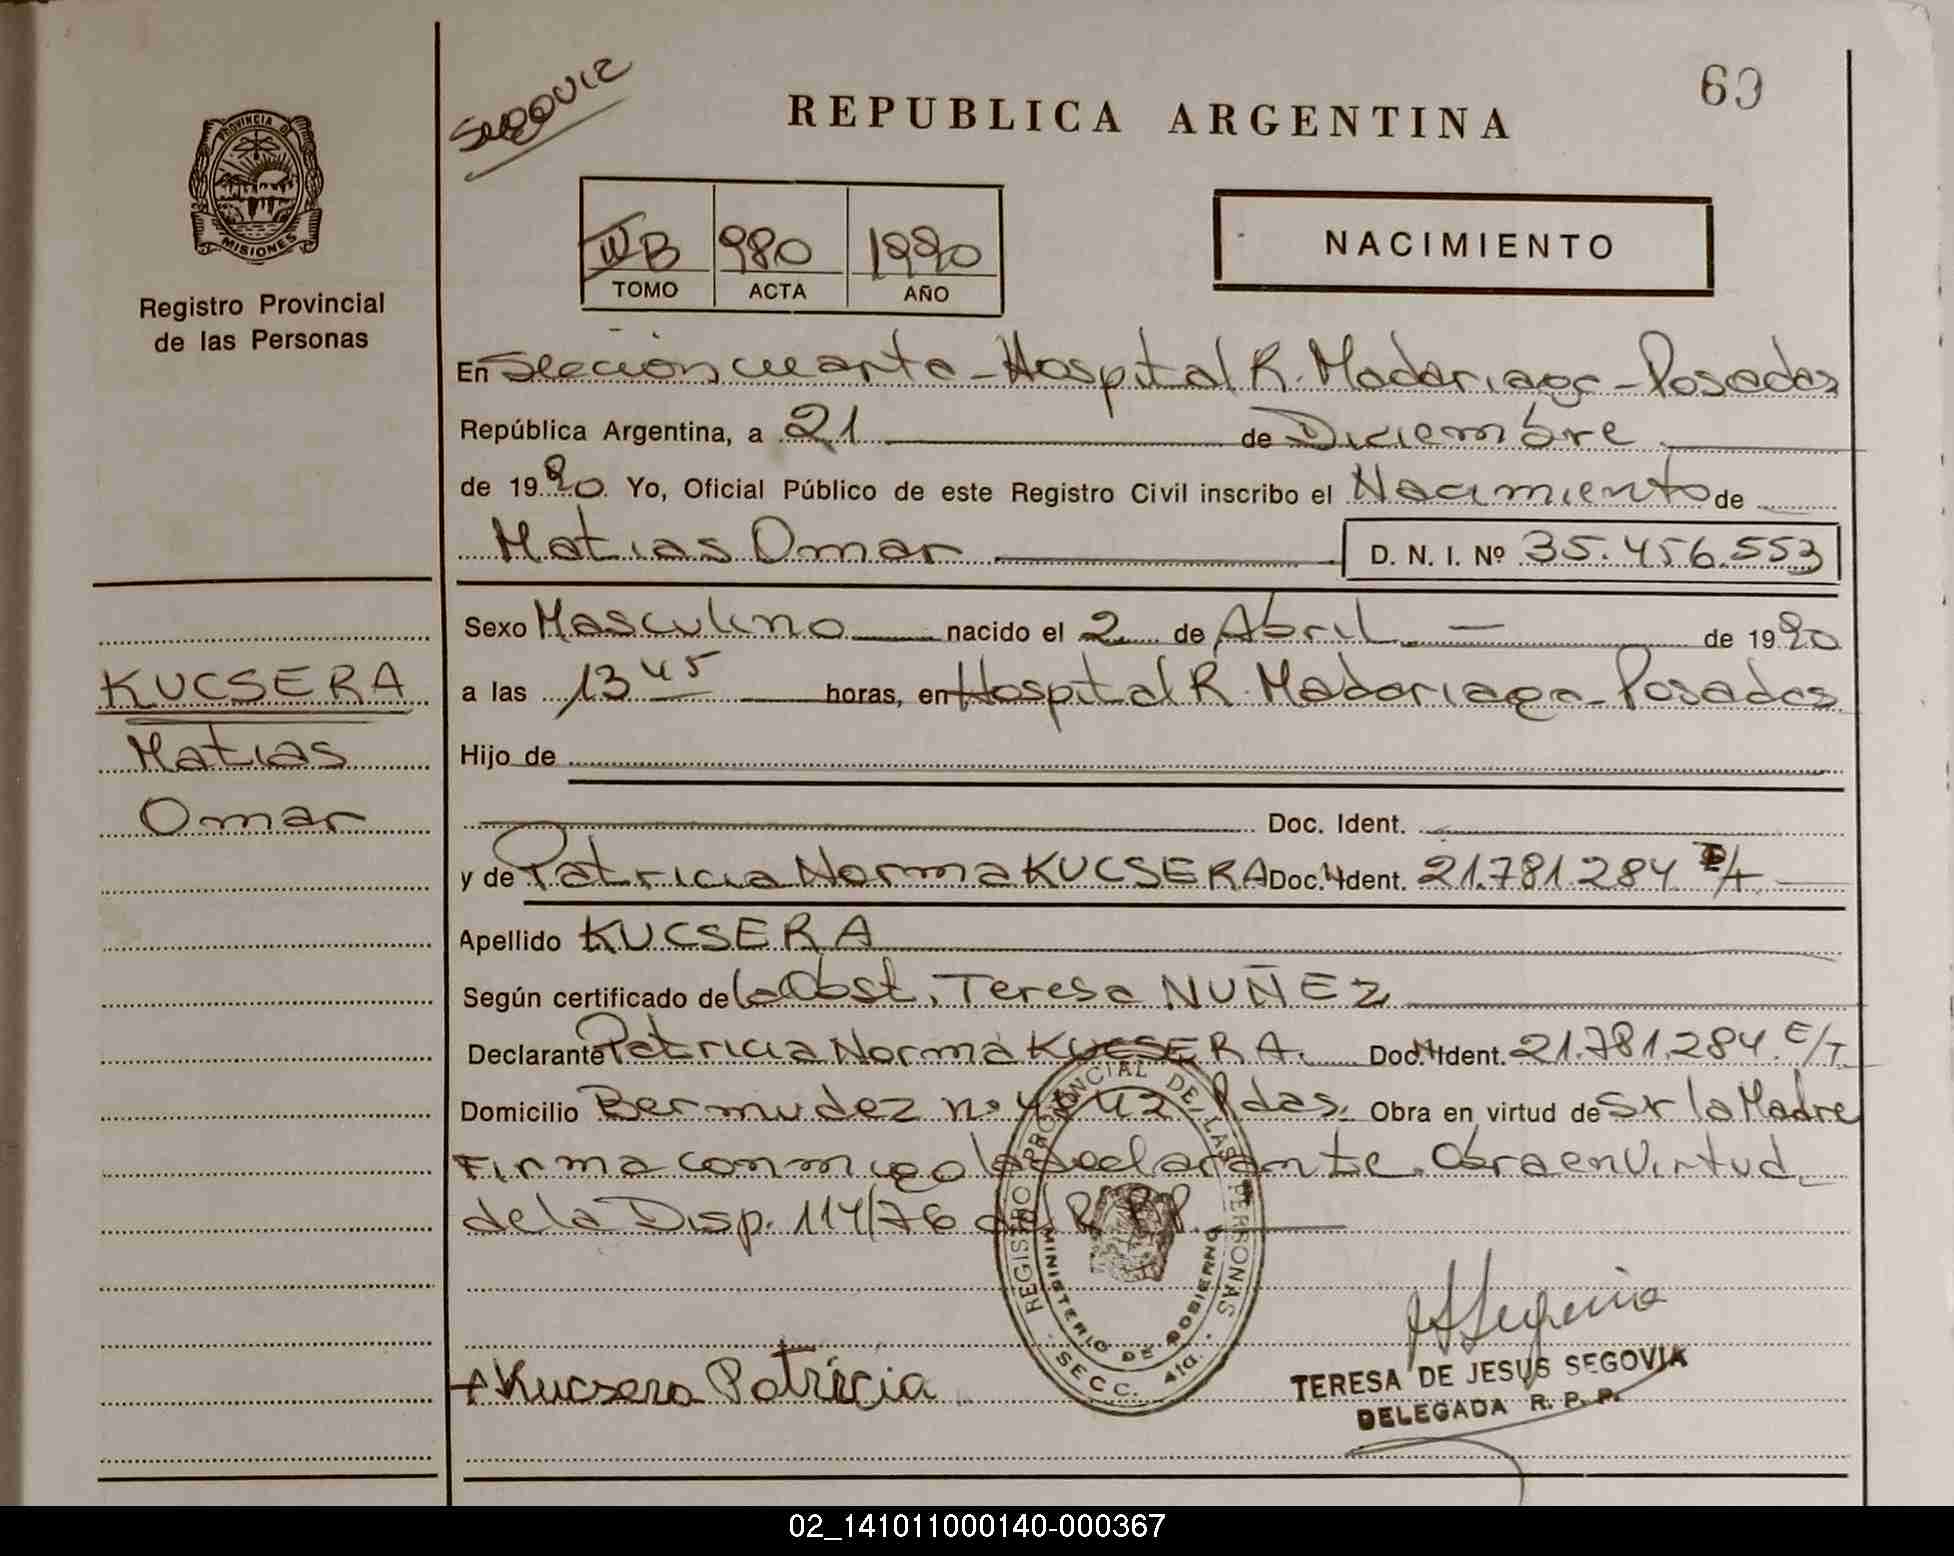 Segovia
REPUBLICA ARGENTINA
69
PROVINCIA D
MISIONES
Registro Provincial
de las Personas
IVB 980 1990
TOMO ACTA AÑO
NACIMIENTO
En Sección cuarta - Hospital R. Madariaga - Posadas
República Argentina, a 21 de Diciembre
de 1990 Yo, Oficial Público de este Registro Civil inscribo el Nacimiento de
Matias Omar D. N. I. Nº 35.456.553
Sexo Masculino nacido el 2 de Abril - de 1990
a las 13 45 horas, en Hospital R. Madariaga - Posadas
Hijo de
Doc. Ident.
y de Patricia Norma KUCSERA Doc. Ident. 21.781.284 E/T
Apellido KUCSERA
Según certificado de la Obst. Teresa NUÑEZ
Declarante Patricia Norma KUCSERA. Doc. Ident. 21.781.284 E/T
Domicilio Bermudez nº Pdas. Obra en virtud de Sr la Madre
Firma conmigo la declarante. Obra en Virtud
de la Disp. 114/76 del R.P.P.
KUCSERA
Matias
Omar
REGISTRO PROVINCIAL DE LAS PERSONAS
MINISTERIO DE GOBIERNO
SECC. 4ta.
Kucsera Patricia
TERESA DE JESUS SEGOVIA
DELEGADA R. P. P.
02_141011000140-000367